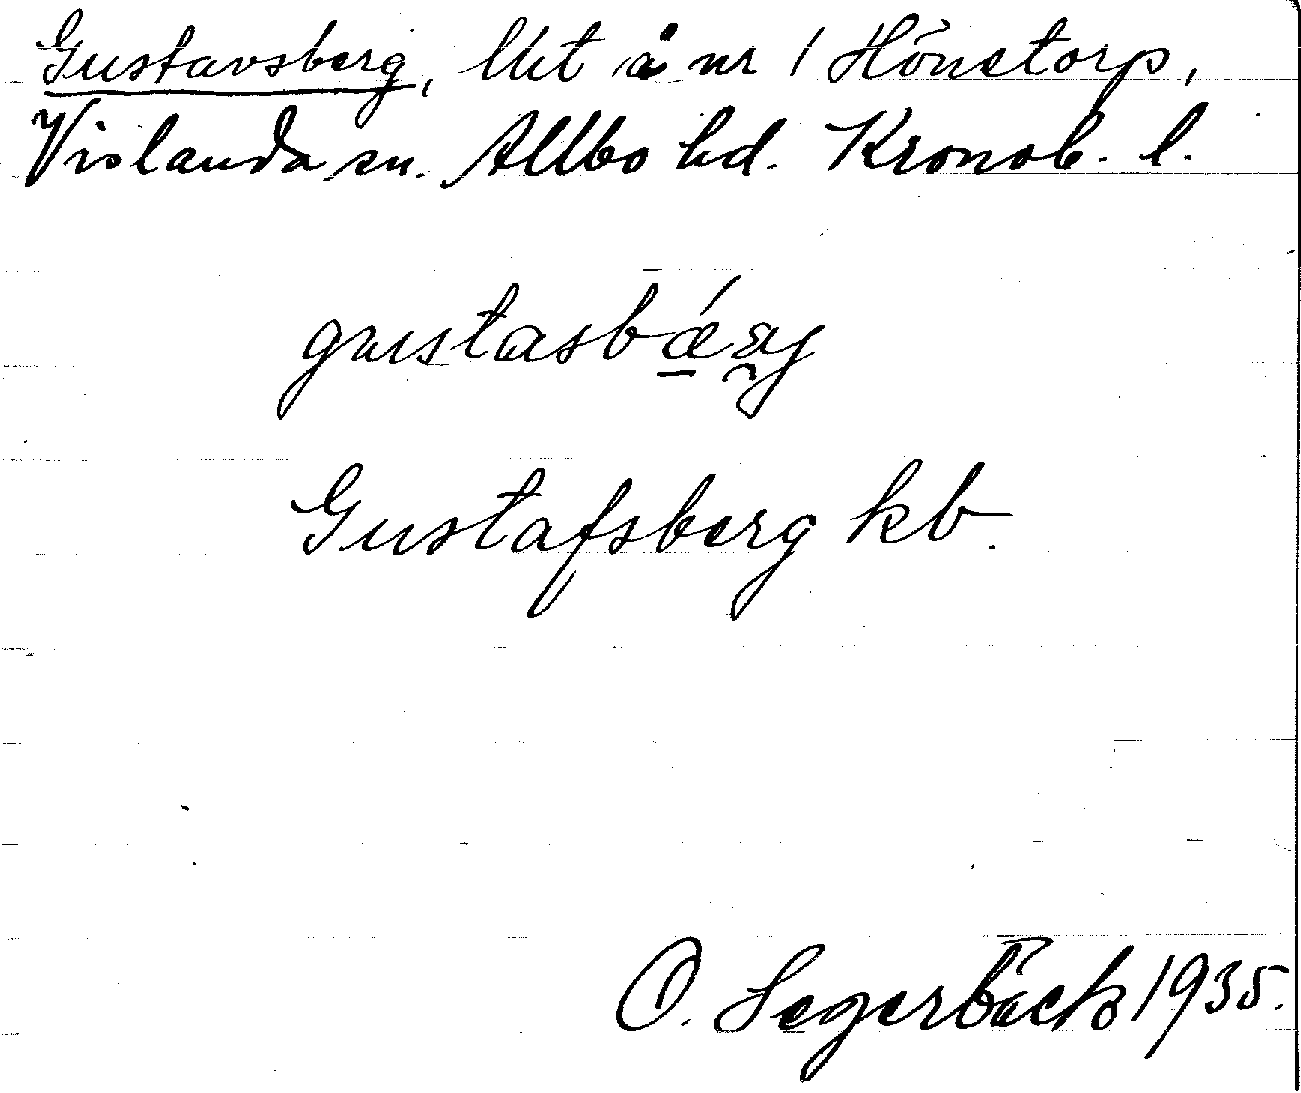 Gustavsberg, lht å nr 1 Hönetorp,
Vislanda sn. Allbo hd. Kronob. l.
Gustafsberg kb.
O. Segerbäck 1935.